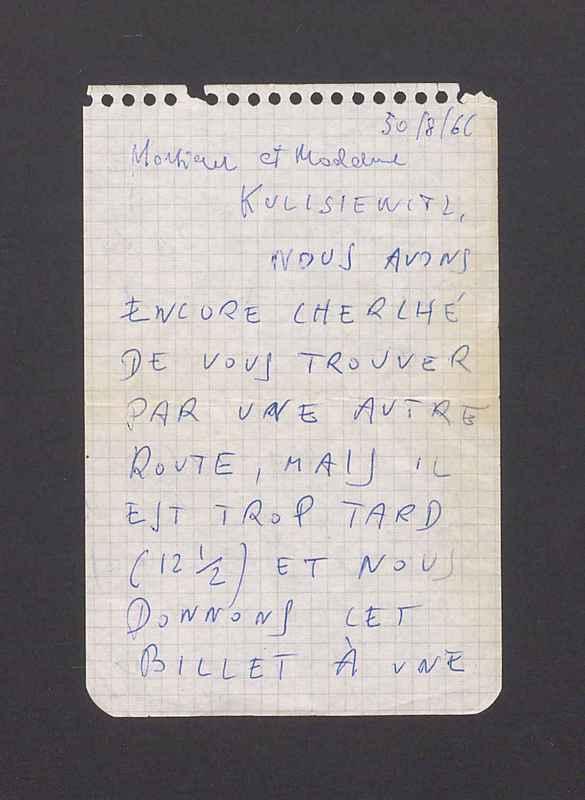 30/8/66
Monsieur et Madame
KULISIEWITZ,
NOUS AVONS
ENCORE CHERCHÉ
DE VOUS TROUVER
PAR UNE AUTRE
ROUTE, MAIS IL
EST TROP TARD
(12 1/2) ET NOUS
DONNONS CET
BILLET À UNE